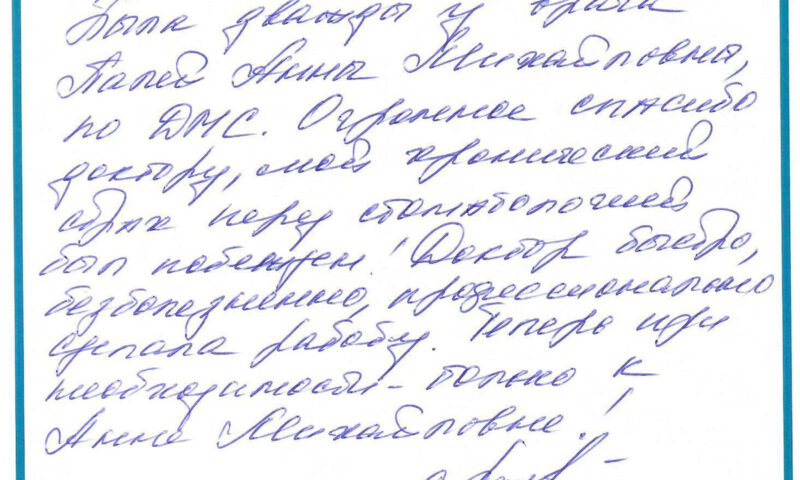 Была дважды у врача
Палей Анны Михайловны,
по ДМС. Огромное спасибо
доктору, мой хронический
страх перед стоматологией
был побежден! Доктор быстро,
безболезненно, профессионально
сделала работу. Теперь при
необходимости - только к
Анне Михайловне!